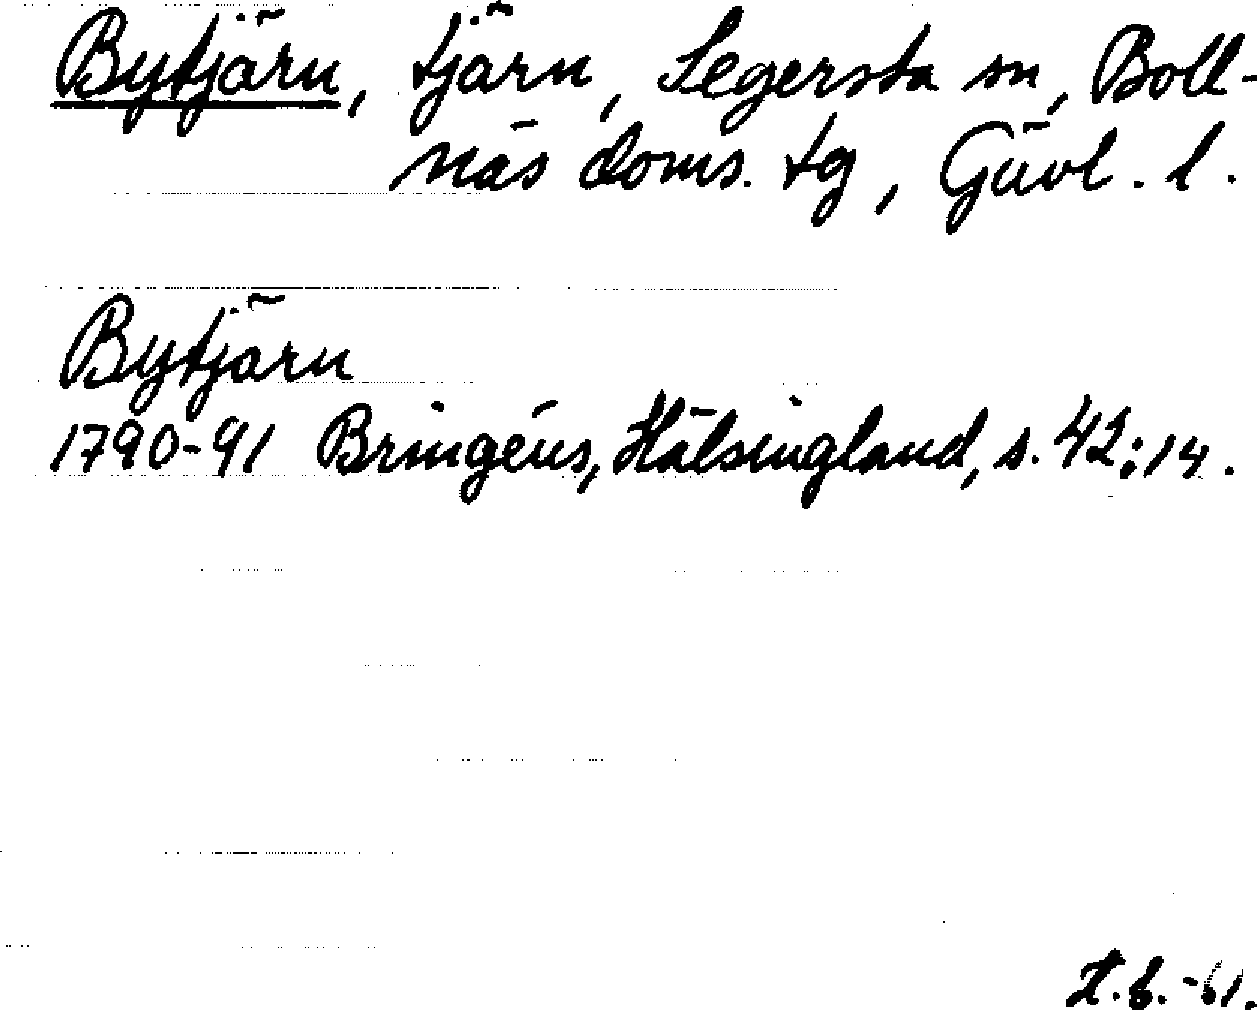 Bytjärn, tjärn, Segersta sn, Boll-
näs doms. tg, Gävl. l.
Bytjärn
1790-91 Bringéus, Hälsingland, s. 42:14.
-61.